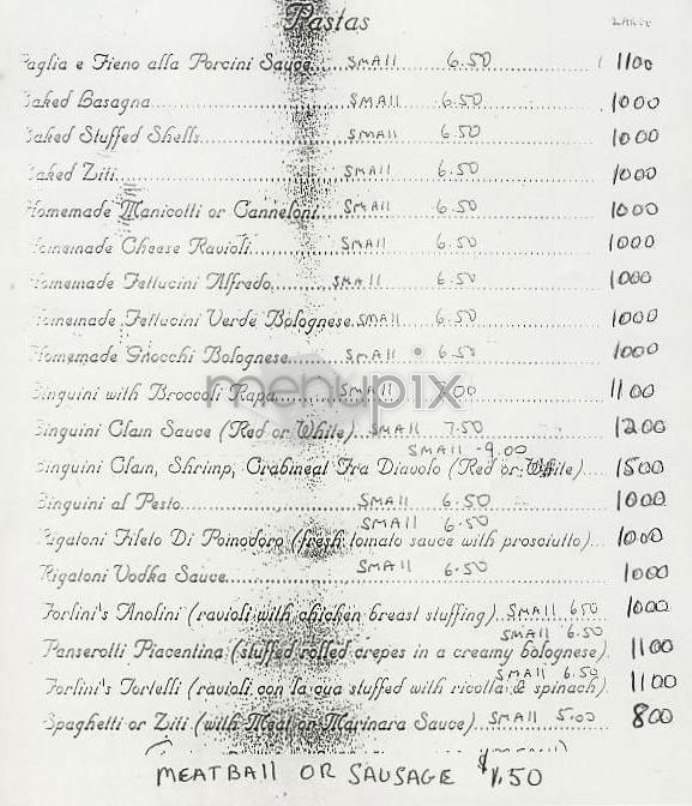 Pastas LARGE
Paglia e Fieno alla Porcini Sauce SMAll 6.50 1100
Baked Lasagna SMAll 6.50 1000
Baked Stuffed Shells SMAll 6.50 1000
Baked Ziti SMAll 6.50 1000
Homemade Manicotti or Canneloni SMAll 6.50 1000
Homemade Cheese Ravioli SMAll 6.50 1000
Homemade Fettucini Alfredo SMAll 6.50 1000
Homemade Fettucini Verde Bolognese SMAll 6.50 1000
Homemade Gnocchi Bolognese SMAll 6.50 1000
menupix
Linguini with Broccoli Rapa SMAll 1100
Linguini Clam Sauce (Red or White) SMAll 7.50 1200
SMAll 9.00
Linguini Clam, Shrimp, Crabmeat Fra Diavolo (Red or White) 1500
Linguini al Pesto SMAll 6.50 1000
SMAll 6.50
Rigatoni Fileto Di Pomodoro (fresh tomato sauce with prosciutto) 1000
Rigatoni Vodka Sauce SMAll 6.50 1000
Forlini's Anolini (ravioli with chicken breast stuffing) SMAll 650 1000
SMAll 6.50
Panserotti Piacentina (stuffed rolled crepes in a creamy bolognese) 1100
SMAll 6.50
Forlini's Tortelli (ravioli con la cua stuffed with ricotta & spinach) 1100
Spaghetti or Ziti (with Meat or Marinara Sauce) SMAll 5.00 800
MEATBAll OR SAUSAGE $1.50